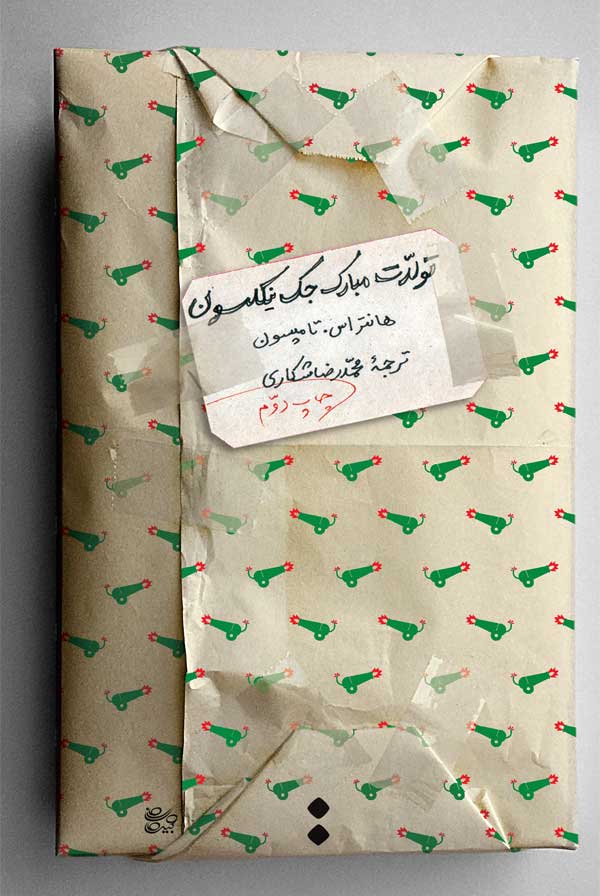 تولّدت مبارک جک نیکلسون
هانتر اس. تامپسون
ترجمهٔ محمّدرضا شکاری
چاپ دوّم